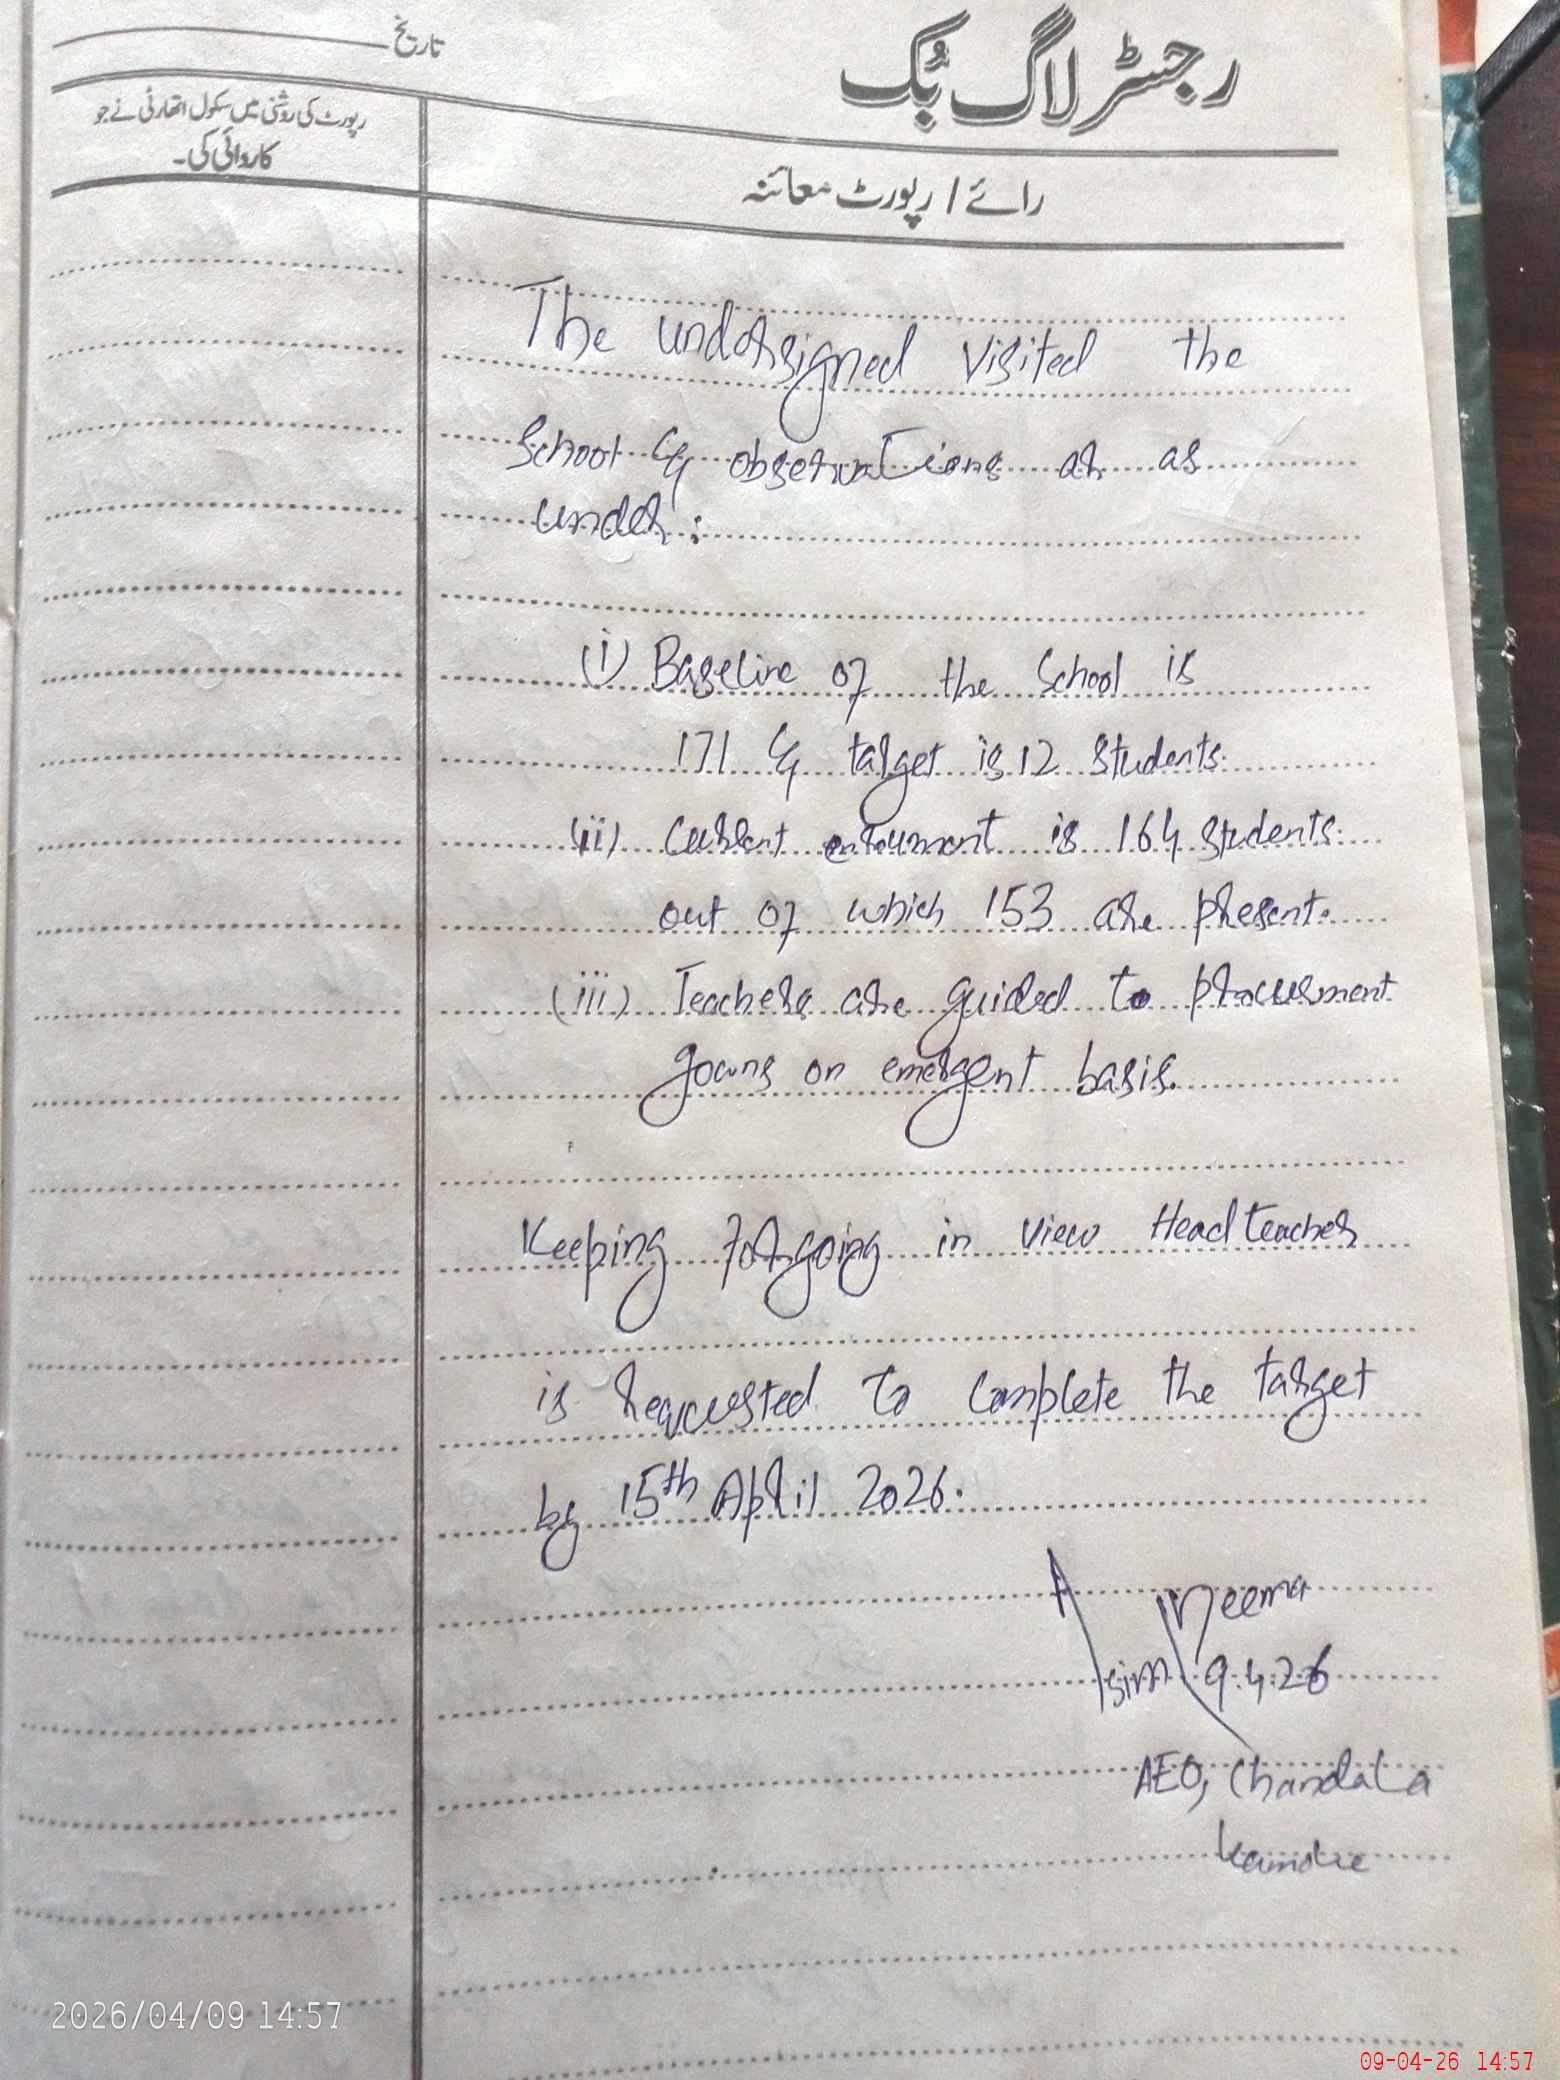 تاریخ
رجسٹر لاگ بُک
رپورٹ کی روشنی میں سکول اتھارٹی نے جو
کاروائی کی۔
رائے / رپورٹ معائنہ
The undersigned visited the
School & observations ar as
under:
(i) Baseline of the School is
171 & target is 12 students.
(ii) Current enrolment is 164 students.
out of which 153 are present.
(iii) Teachers are guided to procurement
gowns on emergent basis.
Keeping forgoing in view Head Teacher
is requested to complete the target
by 15th April 2026.
Asim Neema
9.4.26
AEO, Chandala
2026/04/09 14:57
09-04-26 14:57